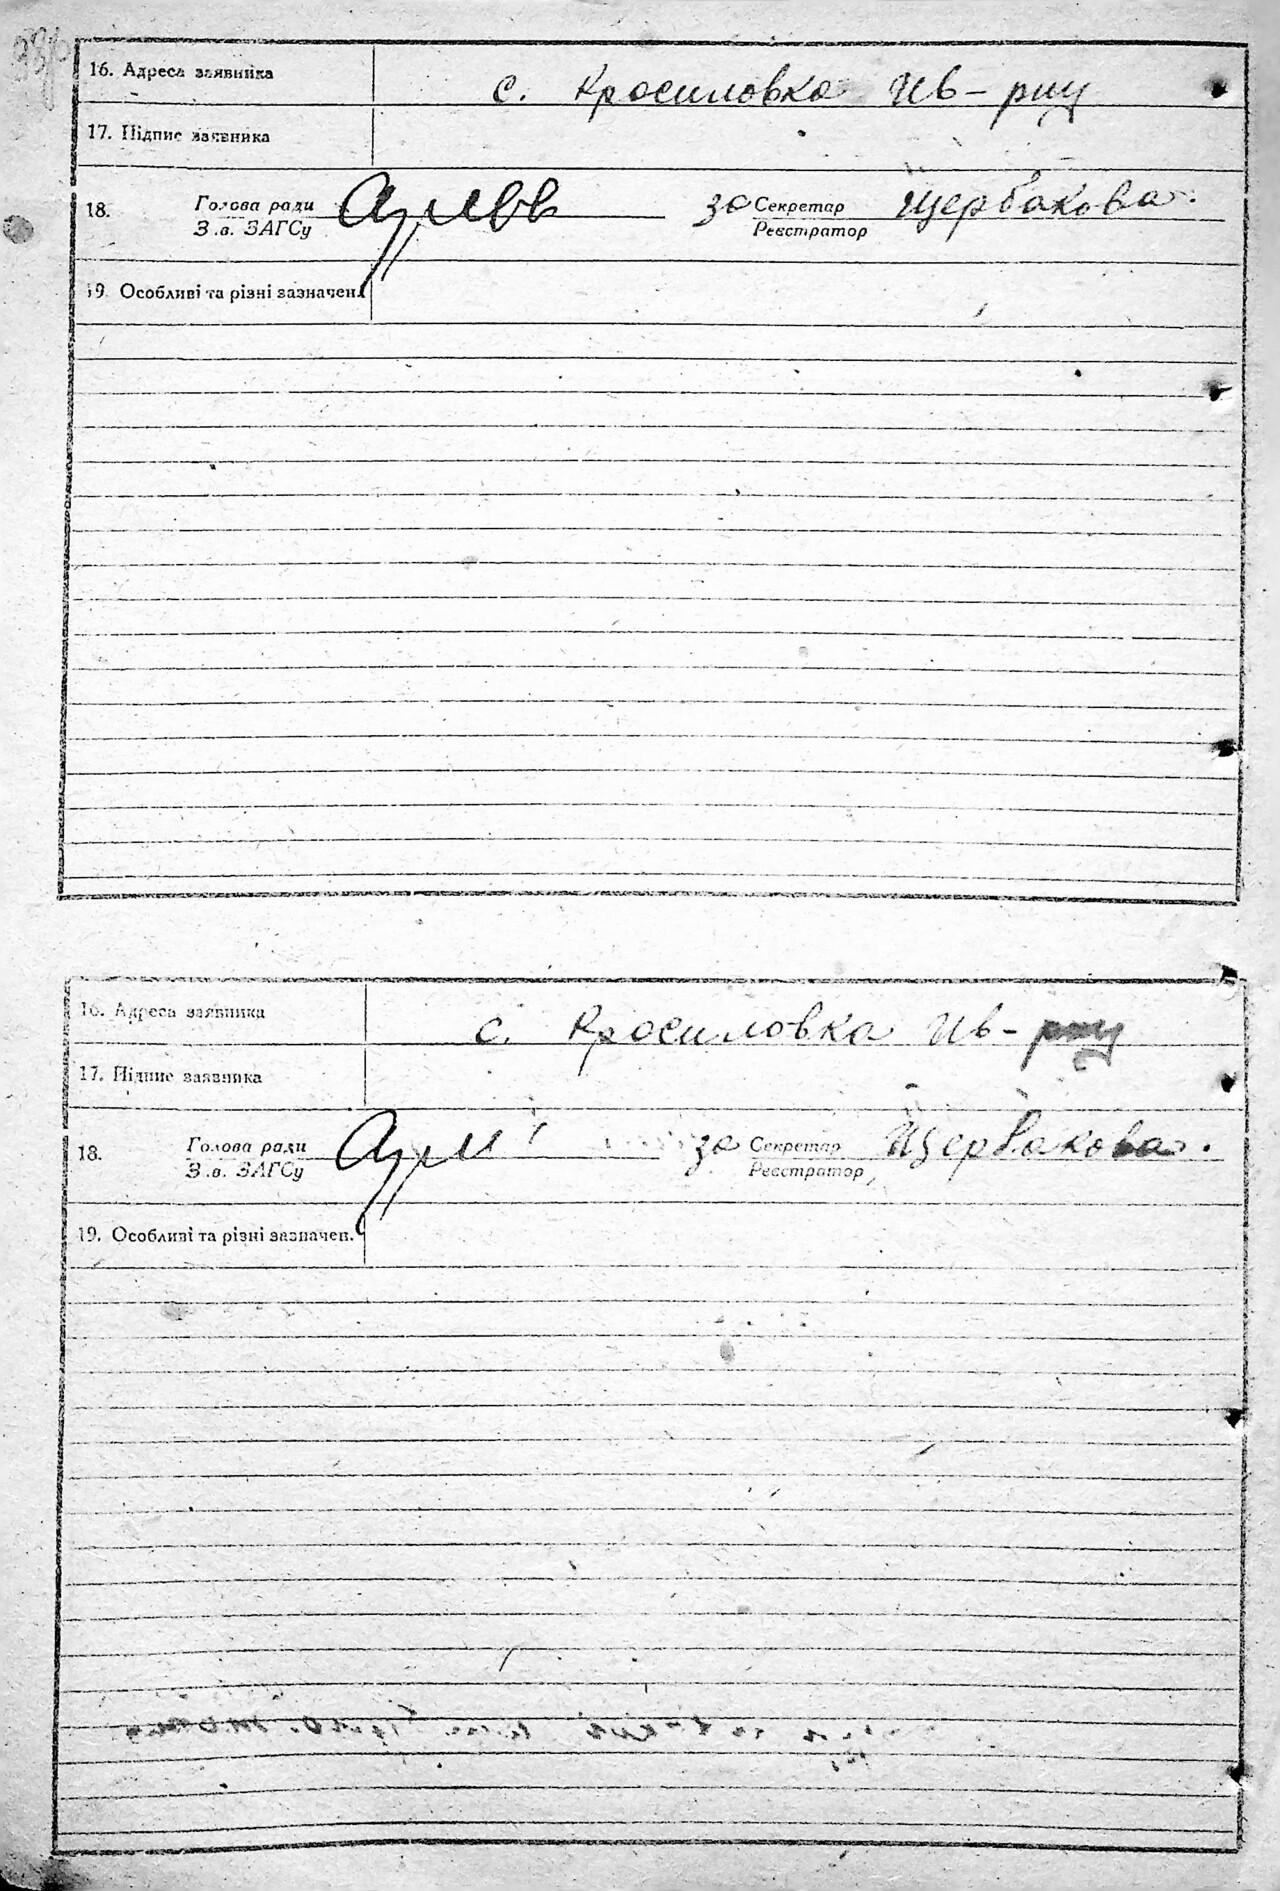 16. Адреса заявника с. Кросиловка Ив-рну
17. Підпис заявника
18. Голова ради за Секретар Щербакова.
З.в. ЗАГСу Реєстратор
19. Особливі та різні зазначен.
16. Адреса заявника с. Кросиловка Ив-рну
17. Підпис заявника
18. Голова ради за Секретар Щербакова.
З.в. ЗАГСу Реєстратор
19. Особливі та різні зазначен.